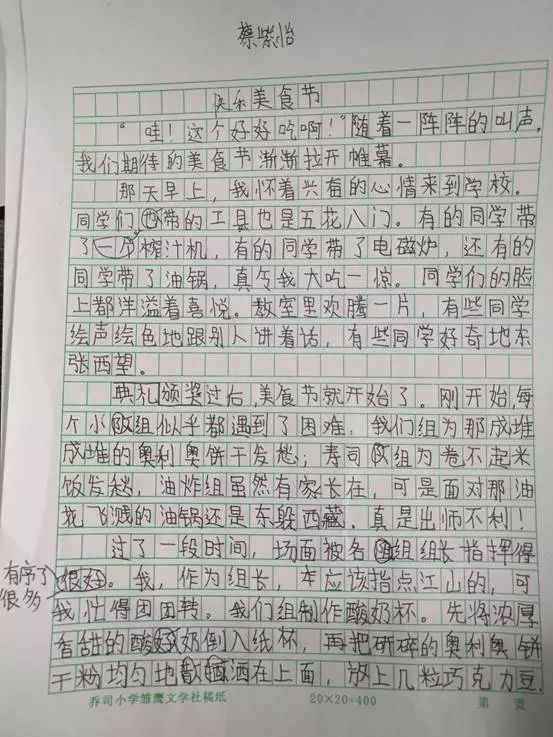 蔡紫怡
快乐美食节
“哇！这个好好吃啊！”随着一阵阵的叫声，
我们期待的美食节渐渐拉开帷幕。
那天早上，我怀着兴奋的心情来到学校。
同学们带的工具也是五花八门。有的同学带
了一个榨汁机，有的同学带了电磁炉，还有的
同学带了油锅，真令我大吃一惊。同学们的脸
上都洋溢着喜悦。教室里欢腾一片，有些同学
绘声绘色地跟别人讲着话，有些同学好奇地东
张西望。
典礼颁奖过后，美食节就开始了。刚开始，每
个小组似乎都遇到了困难。我们组为那成堆
成堆的奥利奥饼干发愁；寿司组为卷不起米
饭发愁，油炸组虽然有家长在，可是面对那油
花飞溅的油锅还是东躲西藏。真是出师不利！
过了一段时间，场面被各组组长指挥得
有序了
很多
很好。我，作为组长，本应该指点江山的，可
我忙得团团转。我们组制作酸奶杯。先将浓厚
香甜的酸奶倒入纸杯，再把研碎的奥利奥饼
干粉均匀地洒在上面，放上几粒巧克力豆
乔司小学雏鹰文学社稿纸 20×20=400 第 页